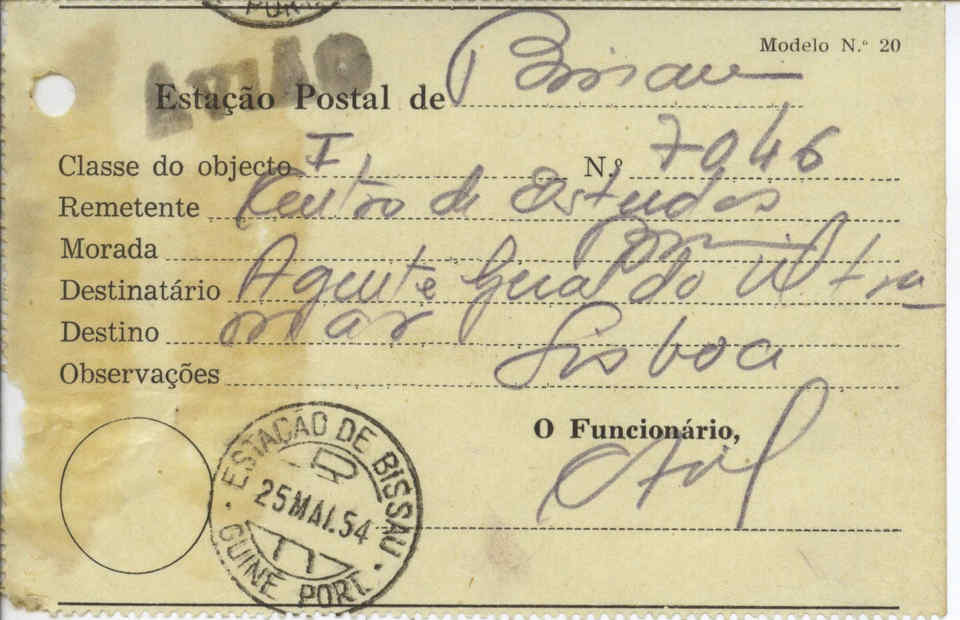 PORT.
Modelo N.º 20
AVIÃO
Estação Postal de Bissau
Classe do objecto I N.º 7046
Remetente Centro de Estudos
Morada
Destinatário Agente Geral do Ultra
Destino mar
Lisboa
Observações
O Funcionário,
ESTAÇÃO DE BISSAU
25 MAI. 54
GUINÉ PORT.